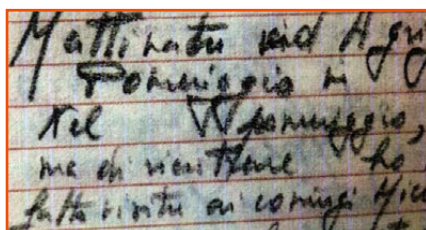 Mattinata ad Agri
Pomeriggio in
Nel pomeriggio,
ma di ho
fatto visita ai coniugi Mic